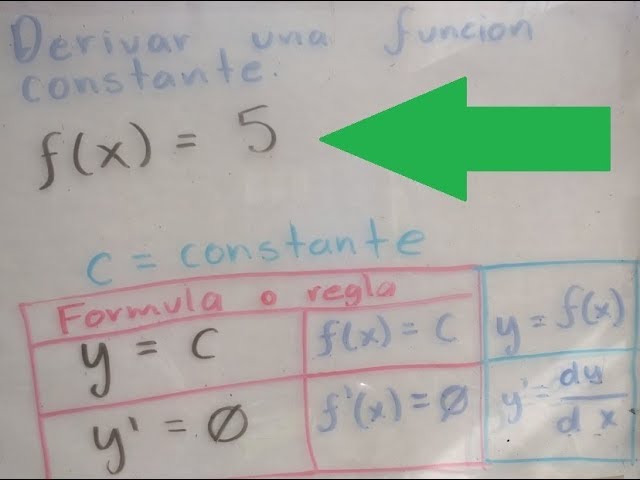 Derivar una funcion
constante.
f(x) = 5
c = constante
Formula o regla
y = c
f(x) = c
y = f(x)
y' = Ø
f'(x) = Ø
y' = dy/dx